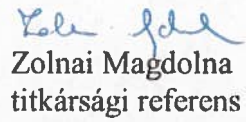 Zolnai Magdolna
titkársági referens